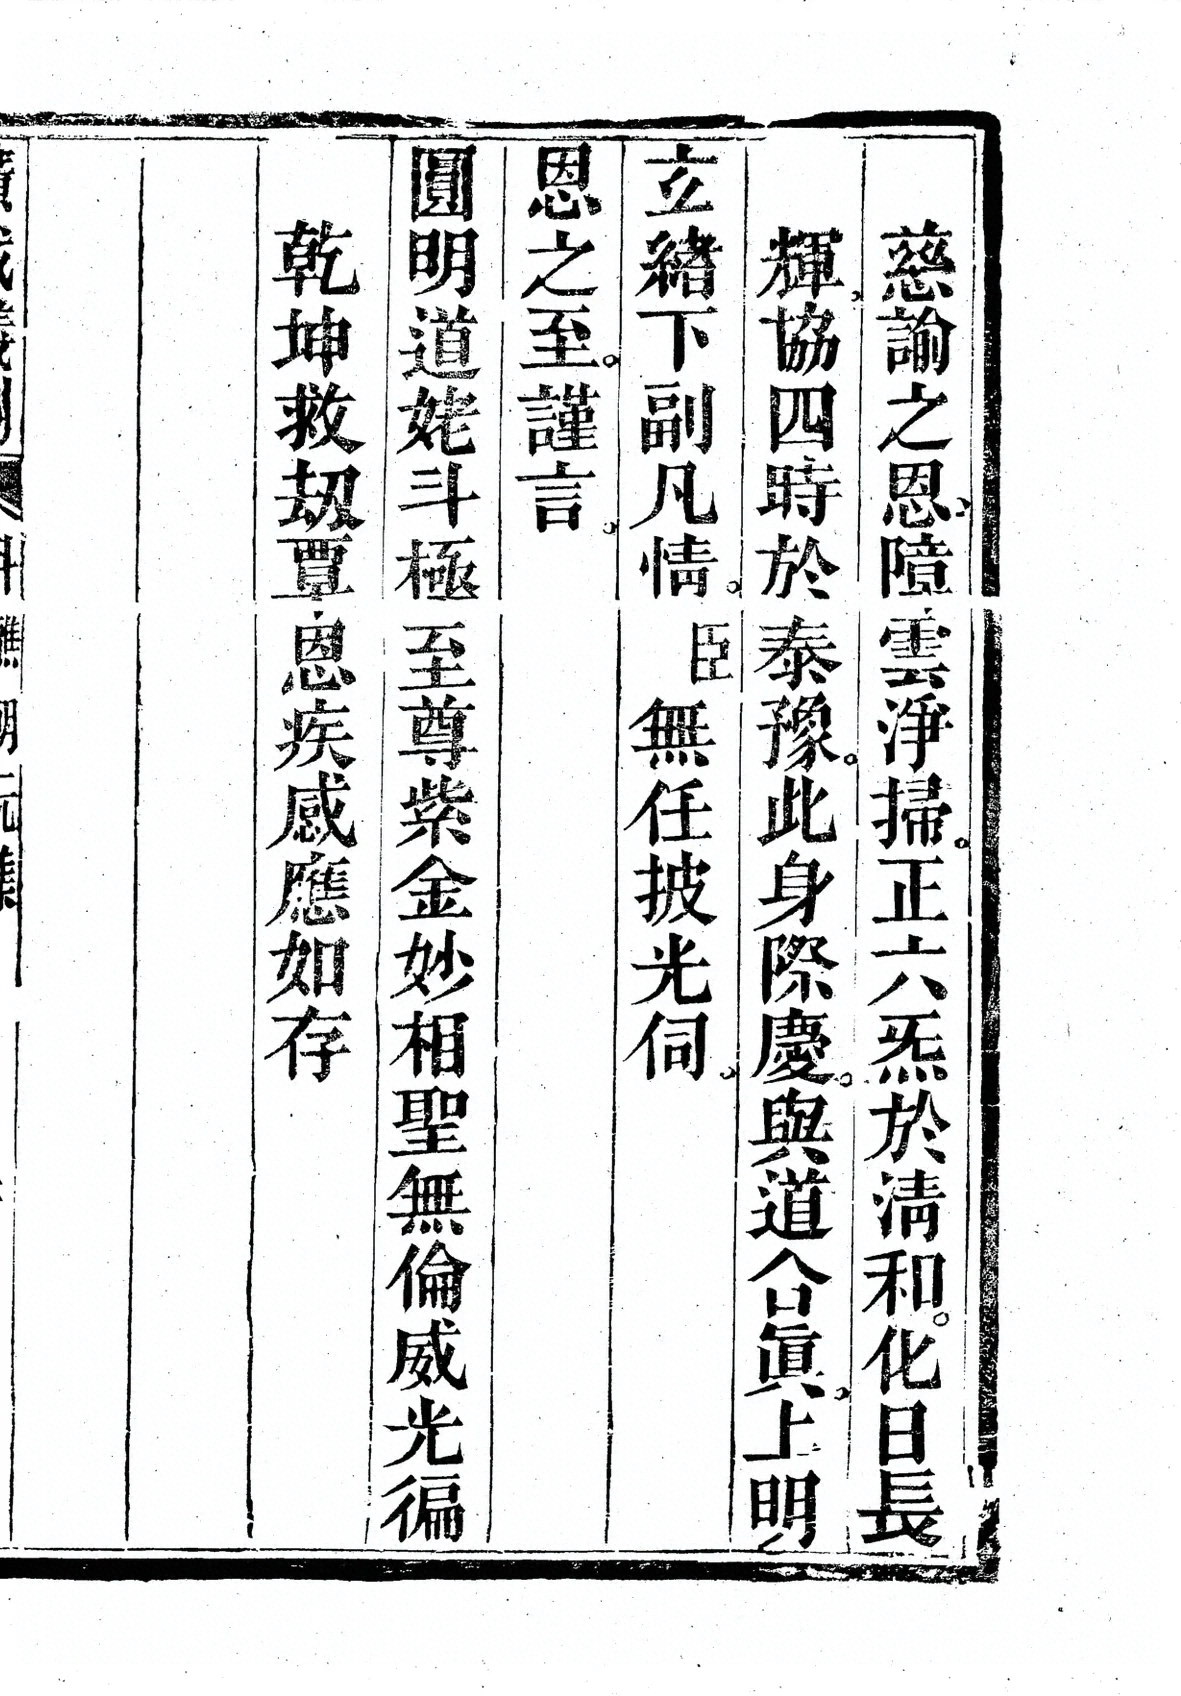 慈諭之恩、障雲淨掃。正六炁於清和。化日長
輝、協四時於泰豫。此身際慶。與道合眞、上明
立緒下副凡情。臣無任披光伺、
恩之至。謹言。
圓明道姥斗極至尊紫金妙相聖無倫威光徧
乾坤救劫覃恩疾感應如存